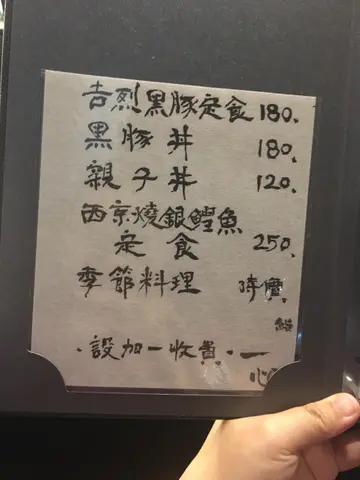 吉烈黑豚定食 180.
黑豚丼 180.
親子丼 120.
西京燒銀鱈魚
定食 250.
季節料理 時價.
·設加一收費·